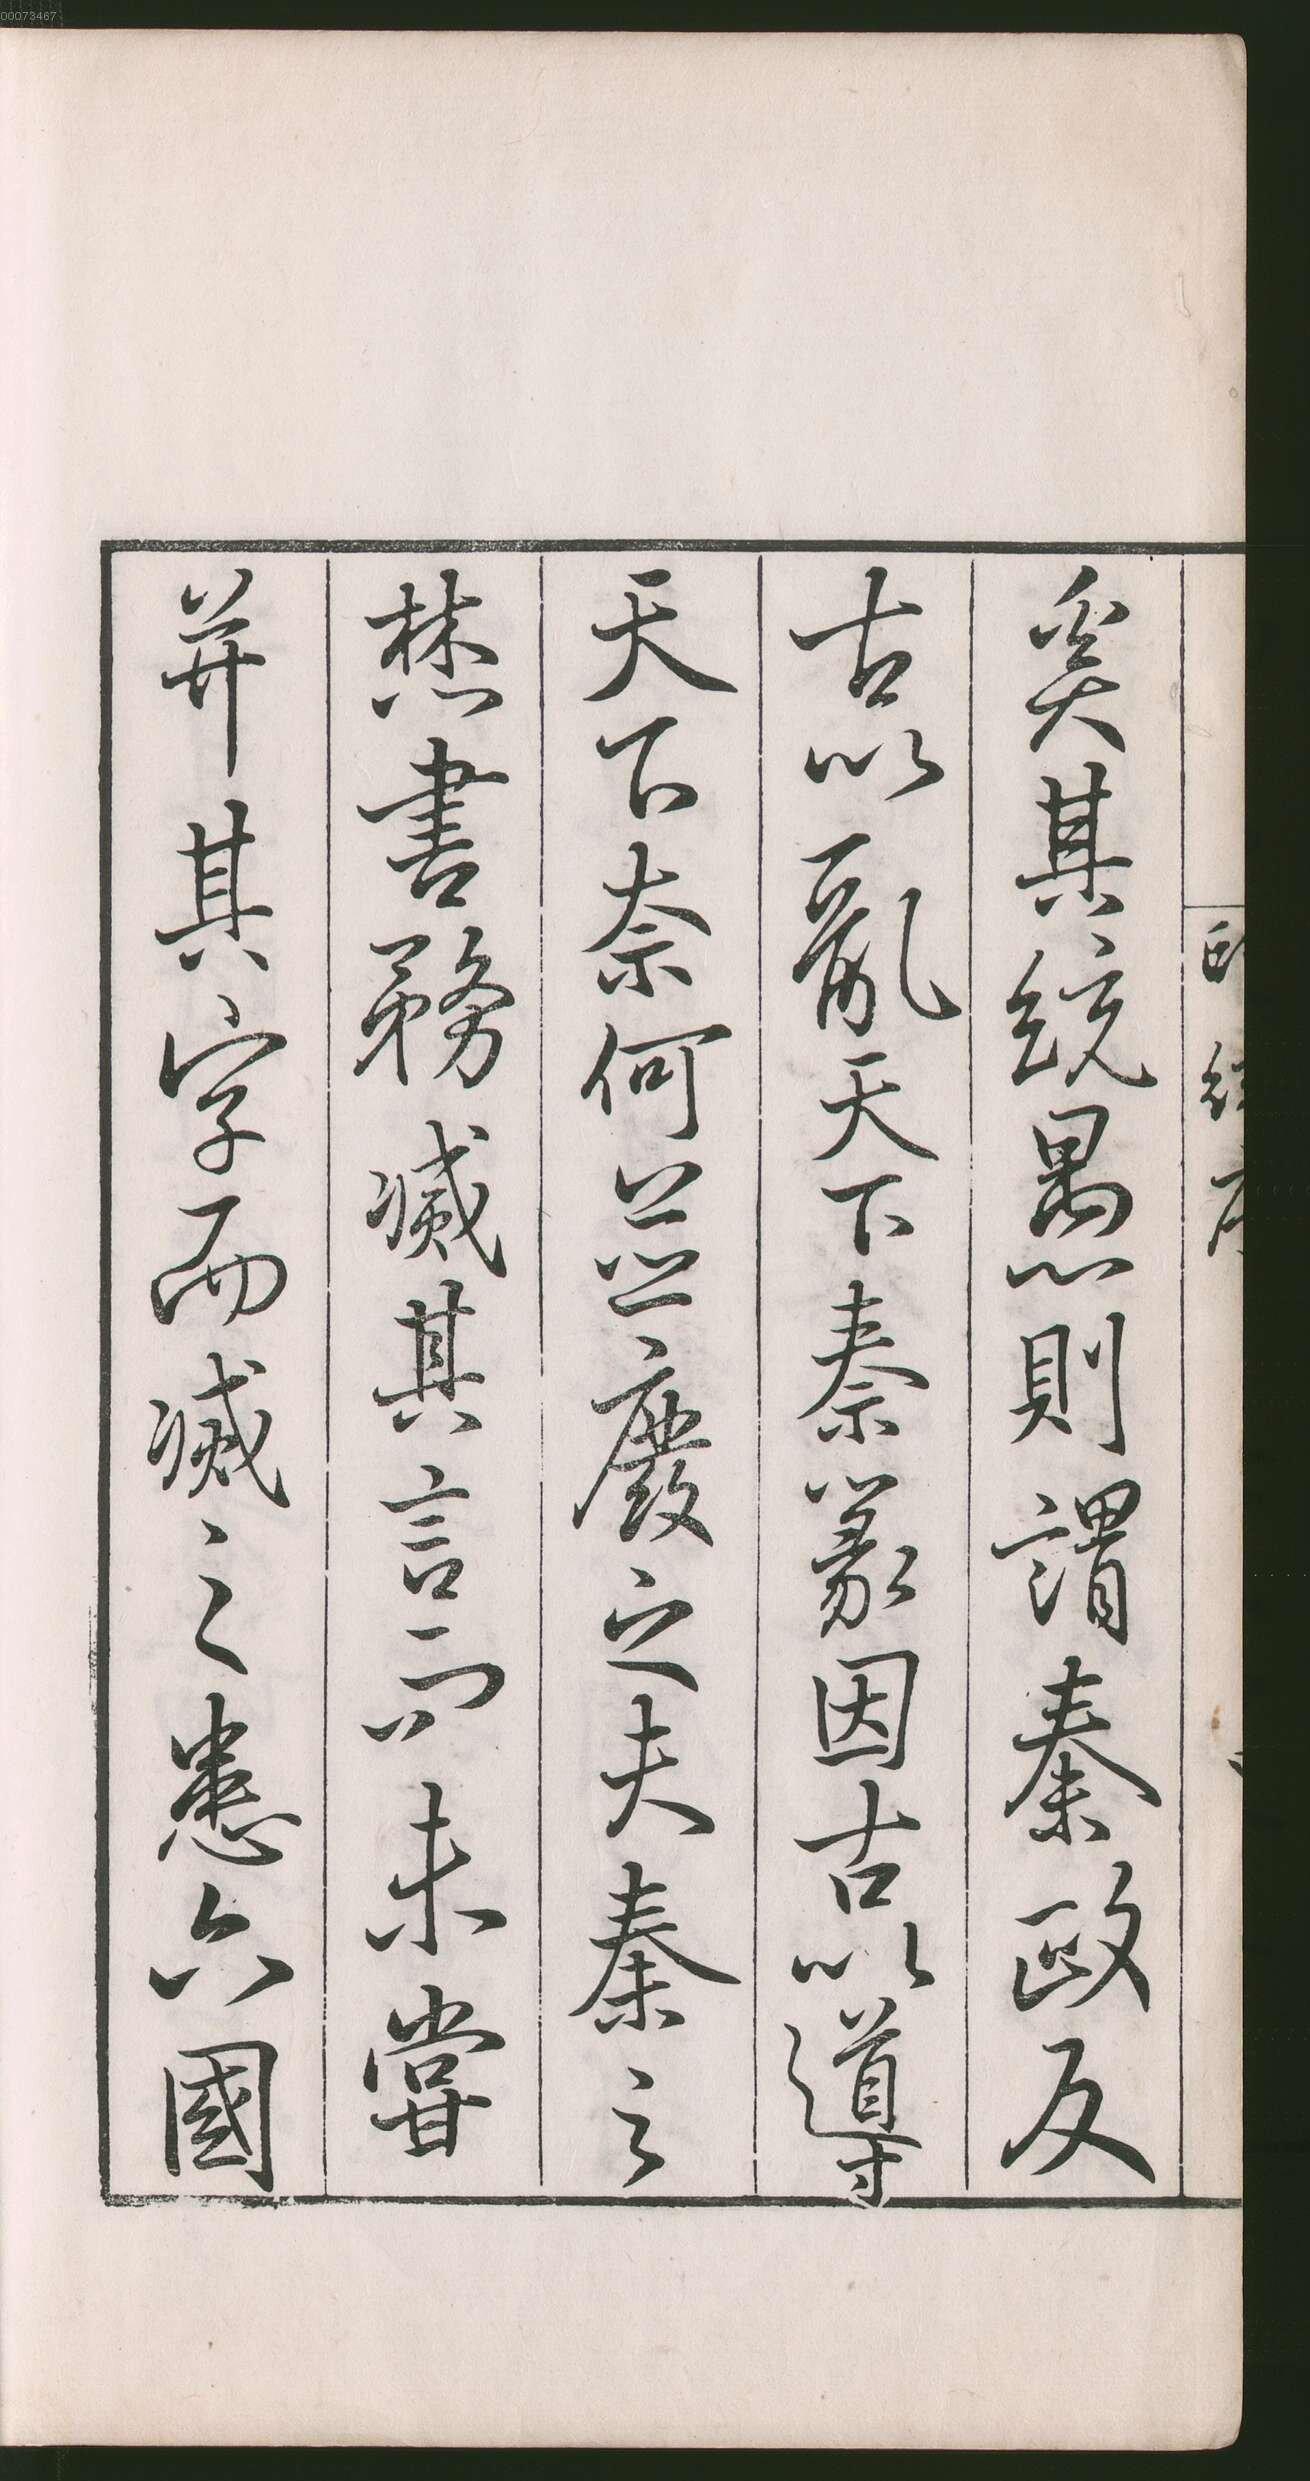 00073467
奚其統愚則謂秦政反
古以亂天下秦篆因古以導
天下奈何並廢之夫秦之
焚書務滅其言而未嘗
并其字而滅之悉六國
印經序